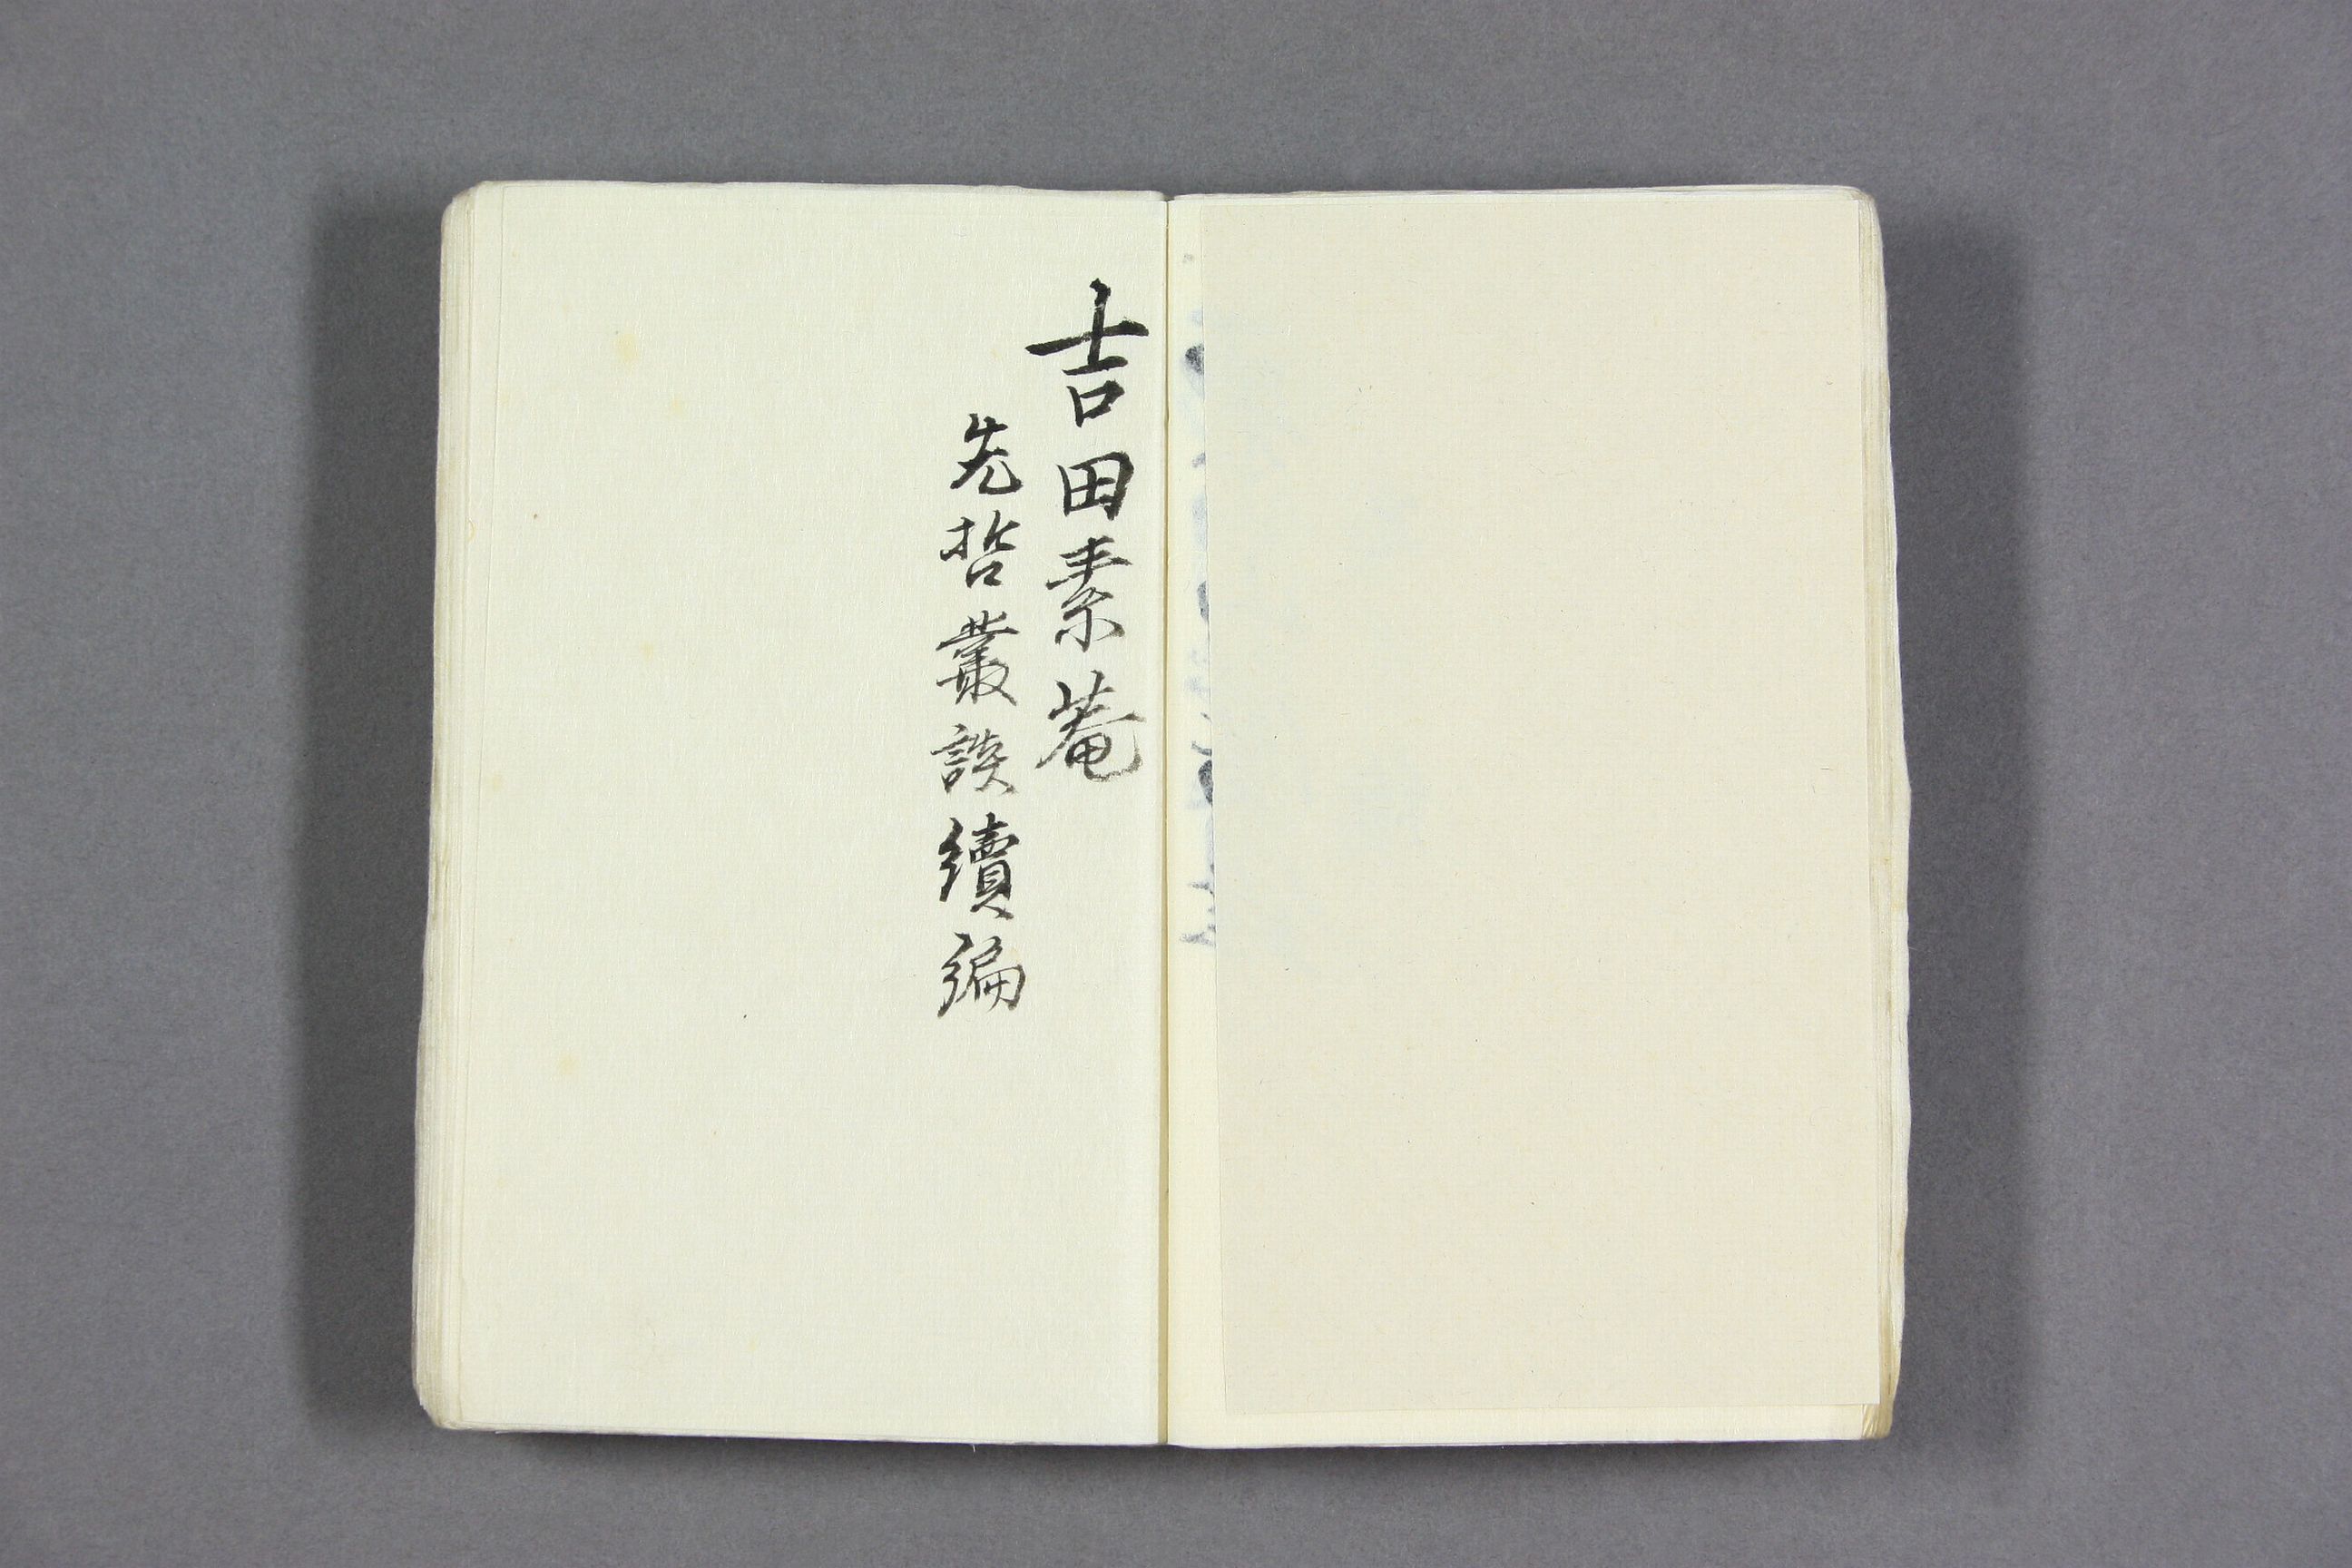 吉田素菴
先哲叢談續編